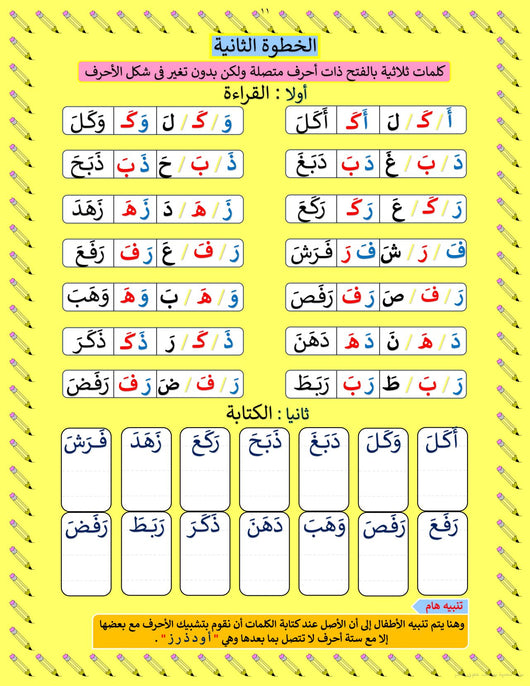 ١١
الخطوة الثانية
كلمات ثلاثية بالفتح ذات أحرف متصلة ولكن بدون تغير فى شكل الأحرف
أولا : القراءة
أَ / كَـ / لَ أَكَـ أَكَلَ
وَ / كَـ / لَ وَكَـ وَكَلَ
دَ / بَـ / غَ دَبَـ دَبَغَ
ذَ / بَـ / حَ ذَبَـ ذَبَحَ
رَ / كَـ / عَ رَكَـ رَكَعَ
زَ / هَـ / دَ زَهَـ زَهَدَ
فَـ / رَ / شَ فَـرَ فَـرَشَ
رَ / فَـ / عَ رَفَـ رَفَعَ
رَ / فَـ / صَ رَفَـ رَفَصَ
وَ / هَـ / بَ وَهَـ وَهَبَ
دَ / هَـ / نَ دَهَـ دَهَنَ
ذَ / كَـ / رَ ذَكَـ ذَكَـرَ
رَ / بَـ / طَ رَبَـ رَبَـطَ
رَ / فَـ / ضَ رَفَـ رَفَضَ
ثانيا : الكتابة
أَكَلَ وَكَلَ دَبَغَ ذَبَحَ رَكَعَ زَهَدَ فَـرَشَ
رَفَعَ رَفَصَ وَهَبَ دَهَنَ ذَكَـرَ رَبَـطَ رَفَضَ
تنبيه هام
وهنا يتم تنبيه الأطفال إلى أن الأصل عند كتابة الكلمات أن نقوم بتشبيك الأحرف مع بعضها
إلا مع ستة أحرف لا تتصل بما بعدها وهي " أ و د ذ ر ز " .